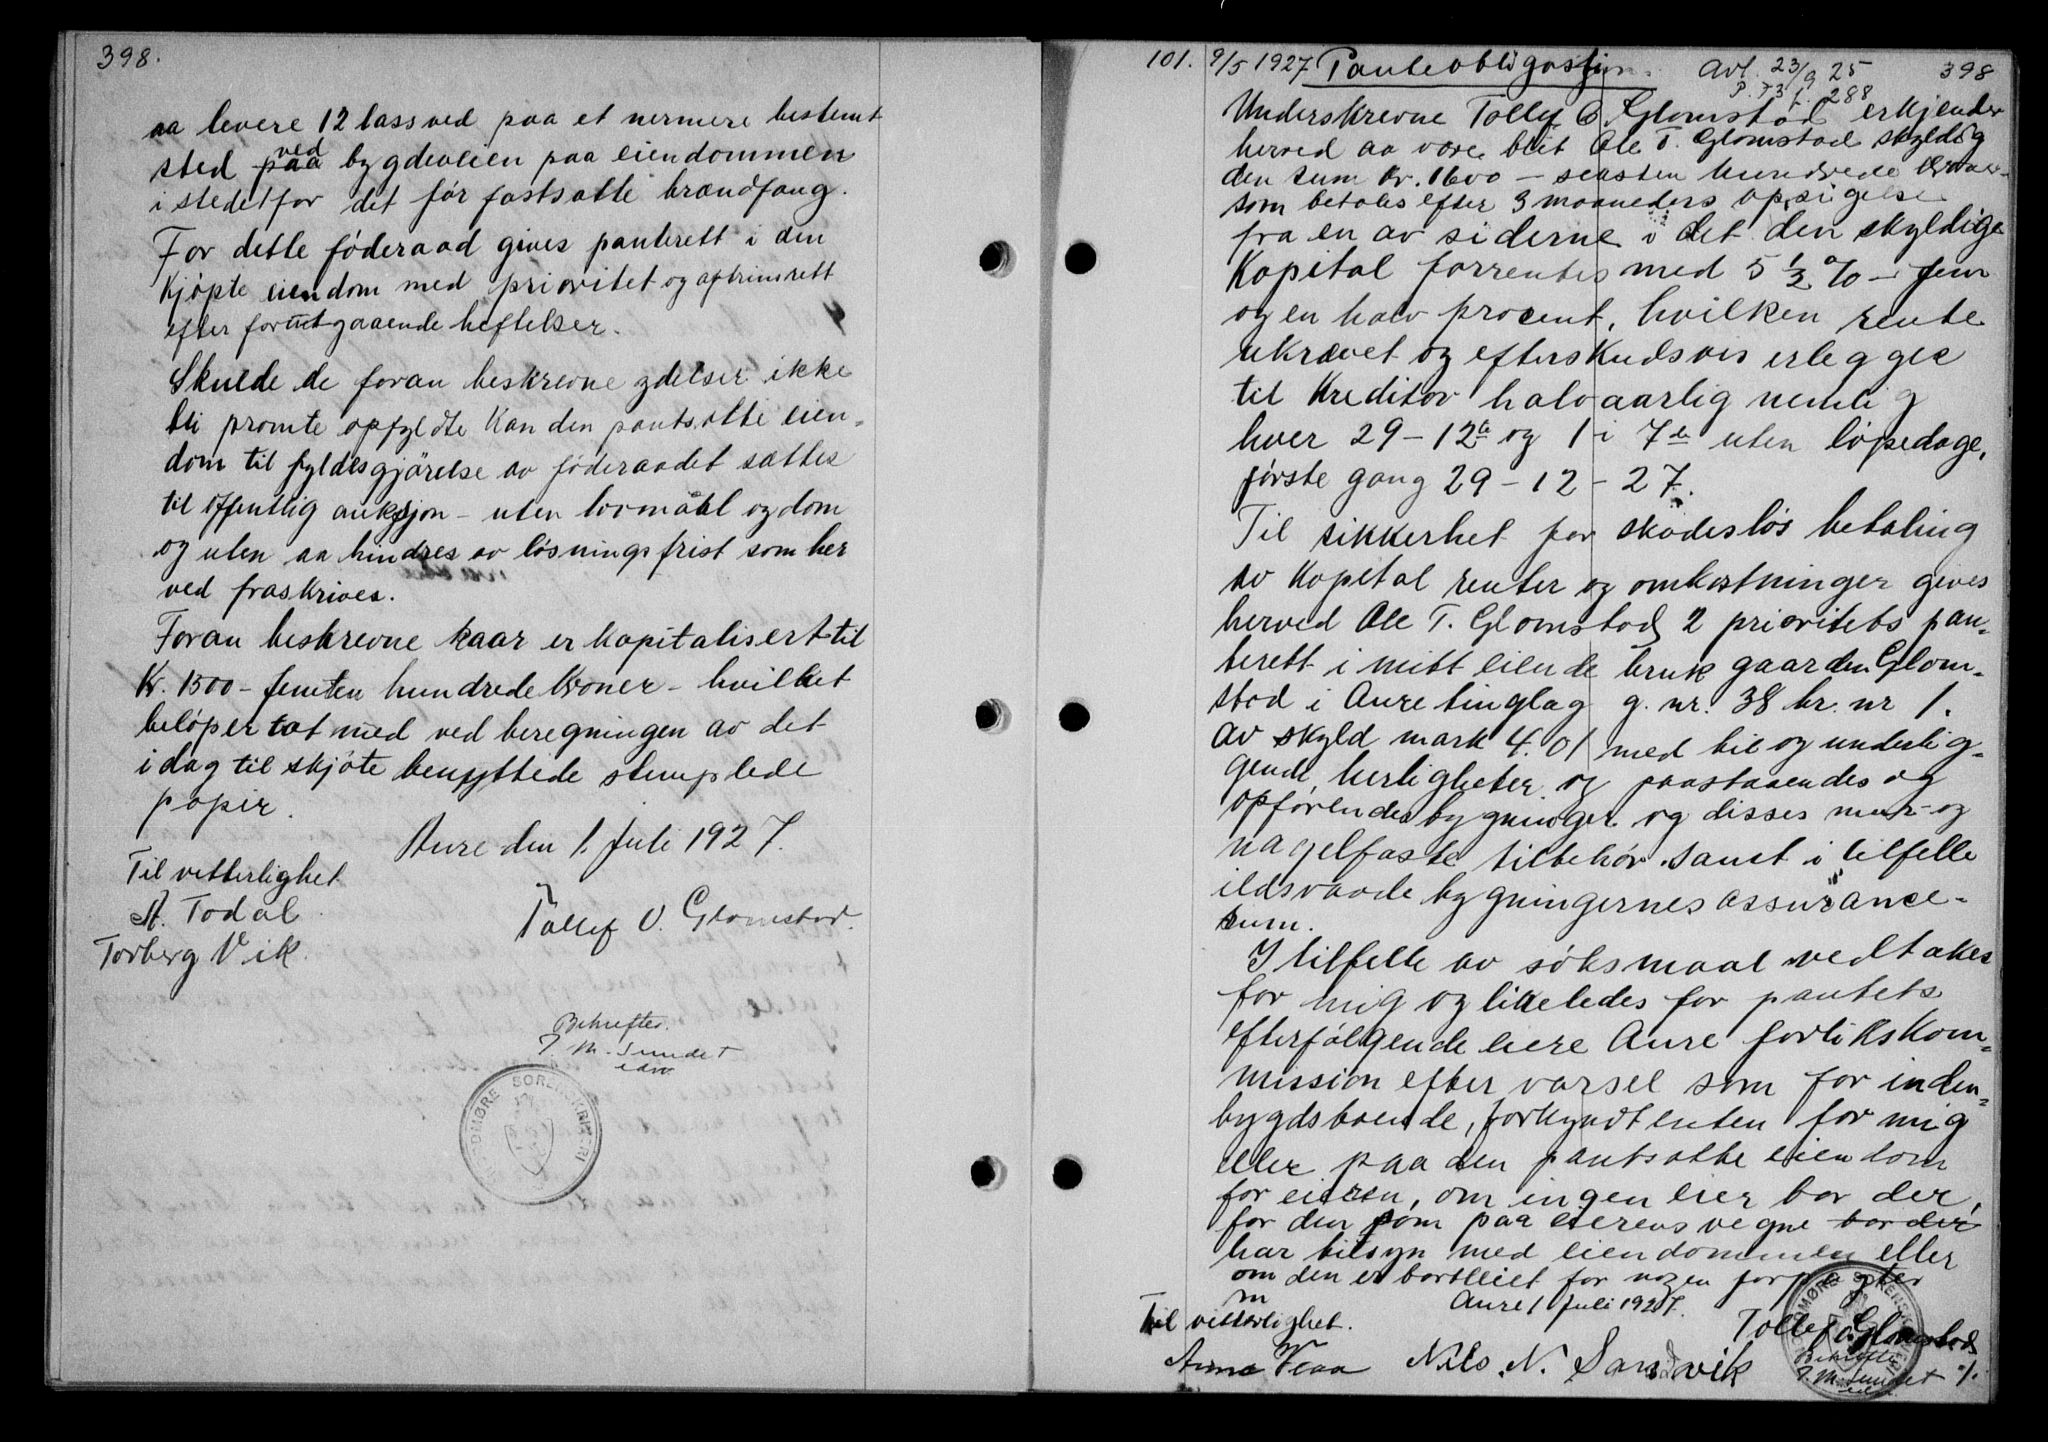 398.
aa levere 12 lass ved paa et nermere bestemt
sted paa ved bygdeveien paa eiendommen
i stedetfor det før fastsatte brændfang.
For dette føderaad gives panterett i den
Kjøpte eiendom med prioritet og optrinsrett
efter forutgaaende heftelser.
Skulde de foran beskrevne ydelser ikke
bli promte opfyldte Kan den pantsatte eien-
dom til fyldesgjørelse av føderaadet sættes
til offentlig auksjon - uten lovmaal og dom
og uten aa hindres av løsningsfrist som her
ved fraskrives.
Foran beskrevne kaar er kapitalisert til
Kr. 1500 - femten hundrede Kroner - hvilket
beløp er tat med ved beregningen av det
i dag til skjøte benyttede stemplede
papir.
Aure den 1. Juli 1927.
Til vitterlighet
A. Todal
Torberg Vik.
Tollef O. Glomstad.
Bekreftes.
J. M. Sundet
edv.
NORDMØRE SORENSKRIVERI
101. 9/5 1927 Panteobligasjon. Avl. 23/9 25 398
P. 73 L. 288
Underskrevne Tollef O. Glomstad erkjender
herved aa være blit Ole T. Glomstad skyldig
den sum Kr. 1600 - seksten hundrede Kroner -
som betales efter 3 maaneders opsigelse
fra en av siderne i det den skyldige
Kapital forrentes med 5 1/2 % - fem
og en halv procent, hvilken rente
ukrævet og efterskudsvis erlegges
til Kreditor halvaarlig nemlig
hver 29 - 12te og 1 i 7de uten løpedage,
første gang 29 - 12 - 27.
Til sikkerhet for skadesløs betaling
av Kapital renter og omkostninger gives
herved Ole T. Glomstad 2 prioritets pan-
terett i mitt eiende bruk gaarden Glom-
stad i Aure tinglag g. nr. 38 br. nr 1.
av skyld mark 4.01 med til og underlig-
gende herligheter og paastaaendes og
opførendes bygninger og disses mur- og
nagelfaste tilbehør samt i tilfelle
ildsvaade bygningernes assurance-
sum.
I tilfelle av søksmaal vedtakes
for mig og likeledes for pantets
efterfølgende eiere Aure forlikskom-
mission efter varsel som for inden-
bygdsboende, forkyndt enten for mig
eller paa den pantsatte eiendom
for eieren, om ingen eier bor der,
for den som paa eierens vegne bor der
har tilsyn med eiendommen eller
om den er bortleiet for nogen forpagter
m
Aure 1 Juli 1927.
Til vitterlighet.
Tollef O. Glomstad
Anna Vean Nils. N. Sandvik
Bekreftes
J. M. Sundet
edv.
NORDMØRE SORENSKRIVERI